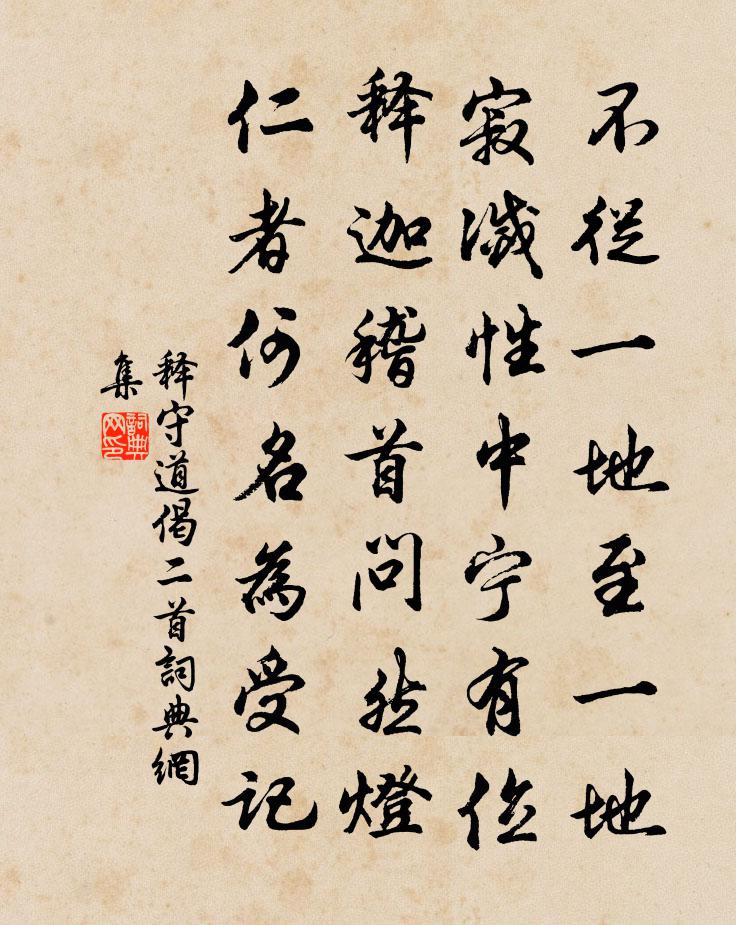 不從一地至一地
寂滅性中宁有位
释迦稽首問然燈
仁者何名為受記
释守道偈二首詞典網
集
詞典网印